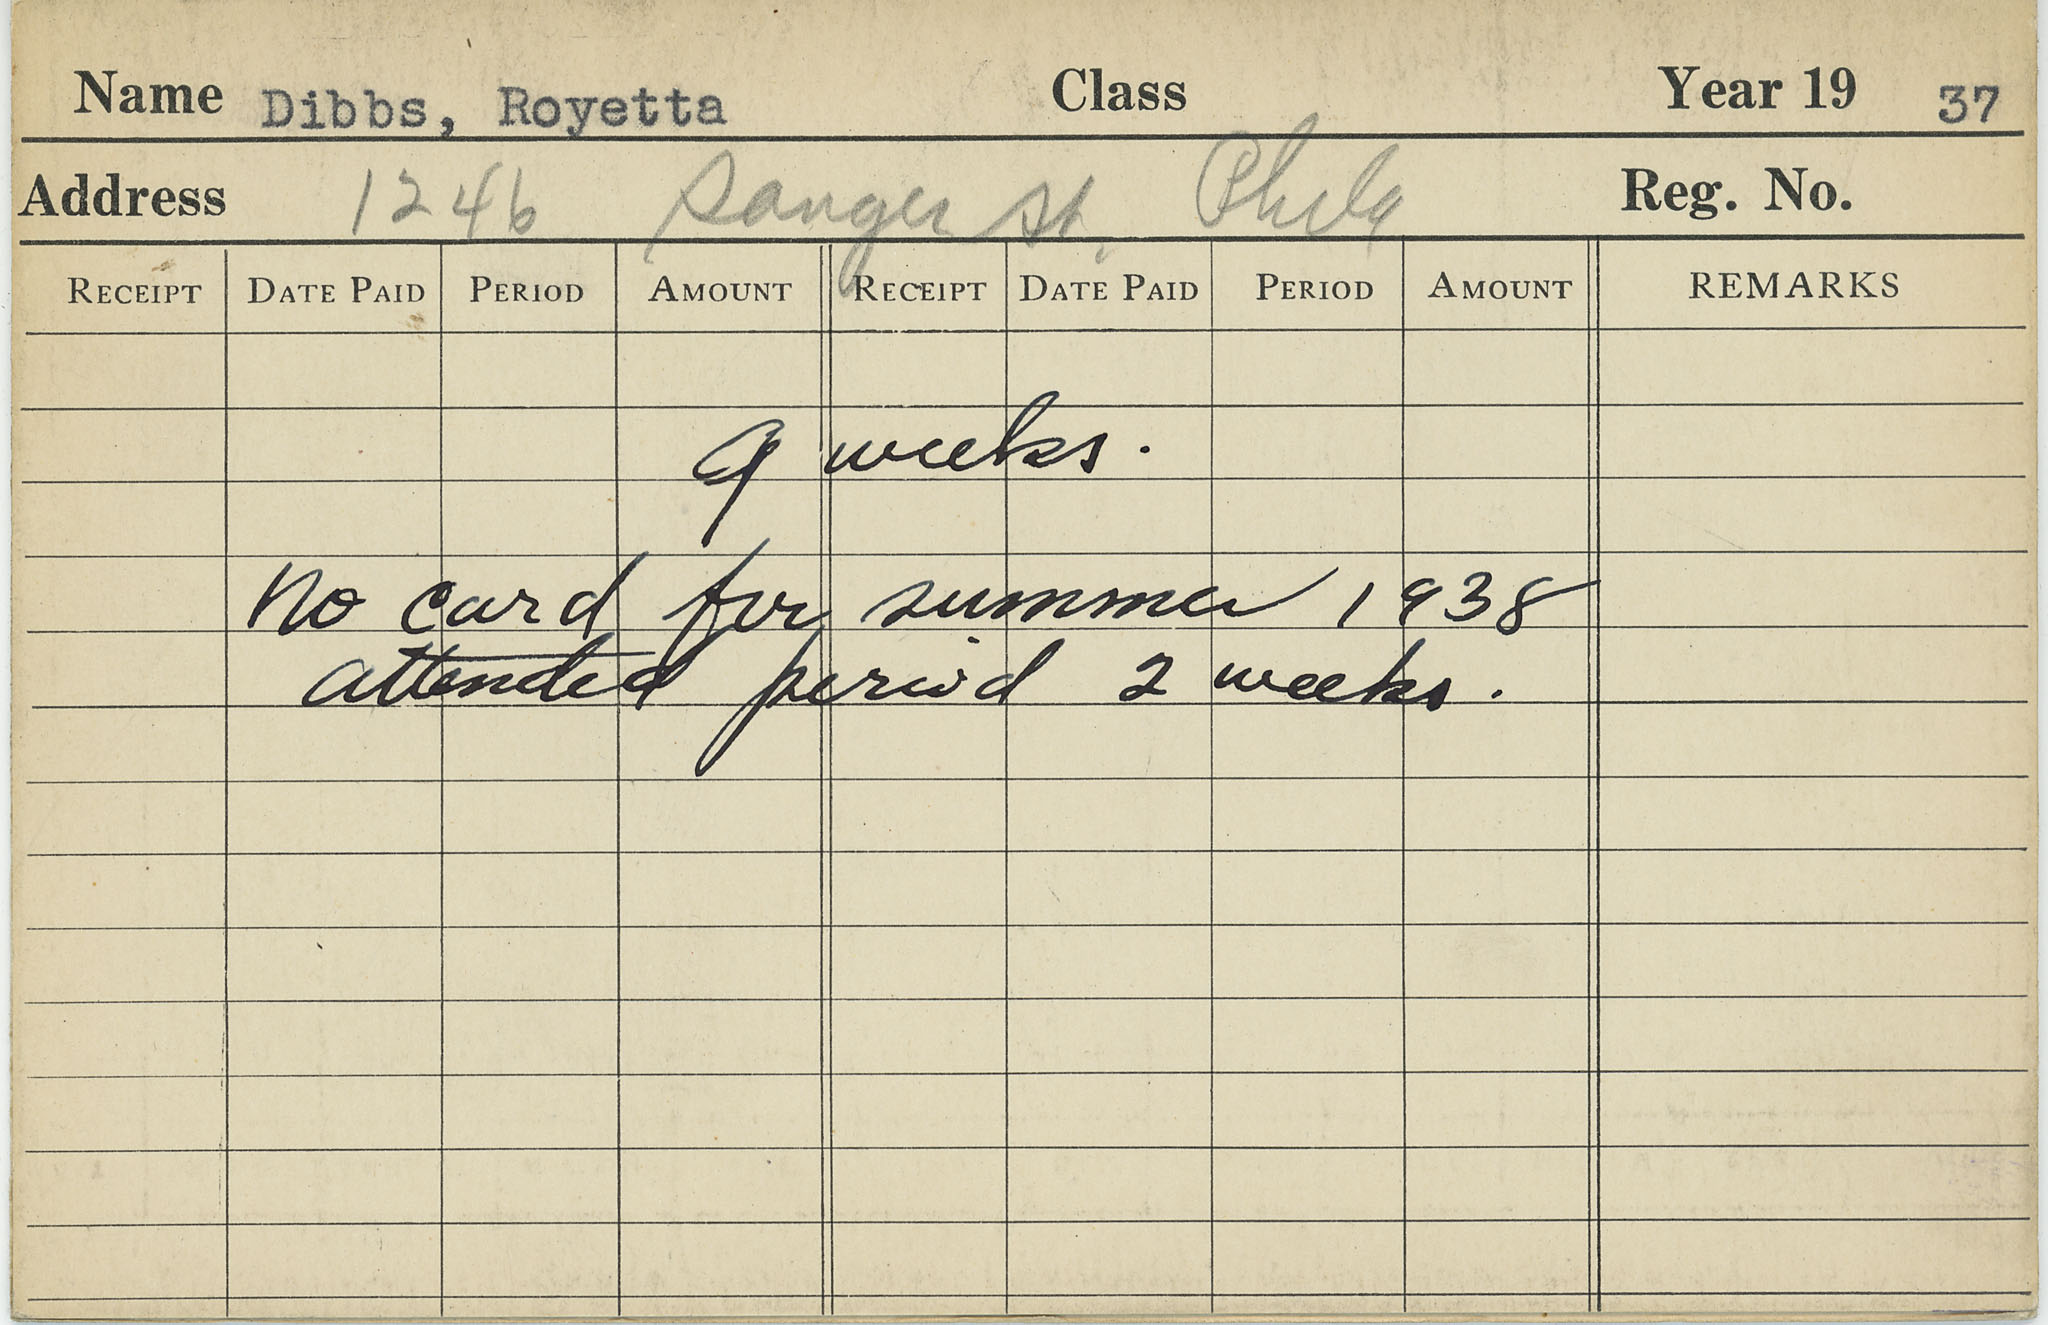 Name Dibbs, Royetta Class Year 19 37
Address 1246 Sanger St. Phila Reg. No.
RECEIPT DATE PAID PERIOD AMOUNT RECEIPT DATE PAID PERIOD AMOUNT REMARKS
9 weeks.
No card for summer 1938
attended period 2 weeks.